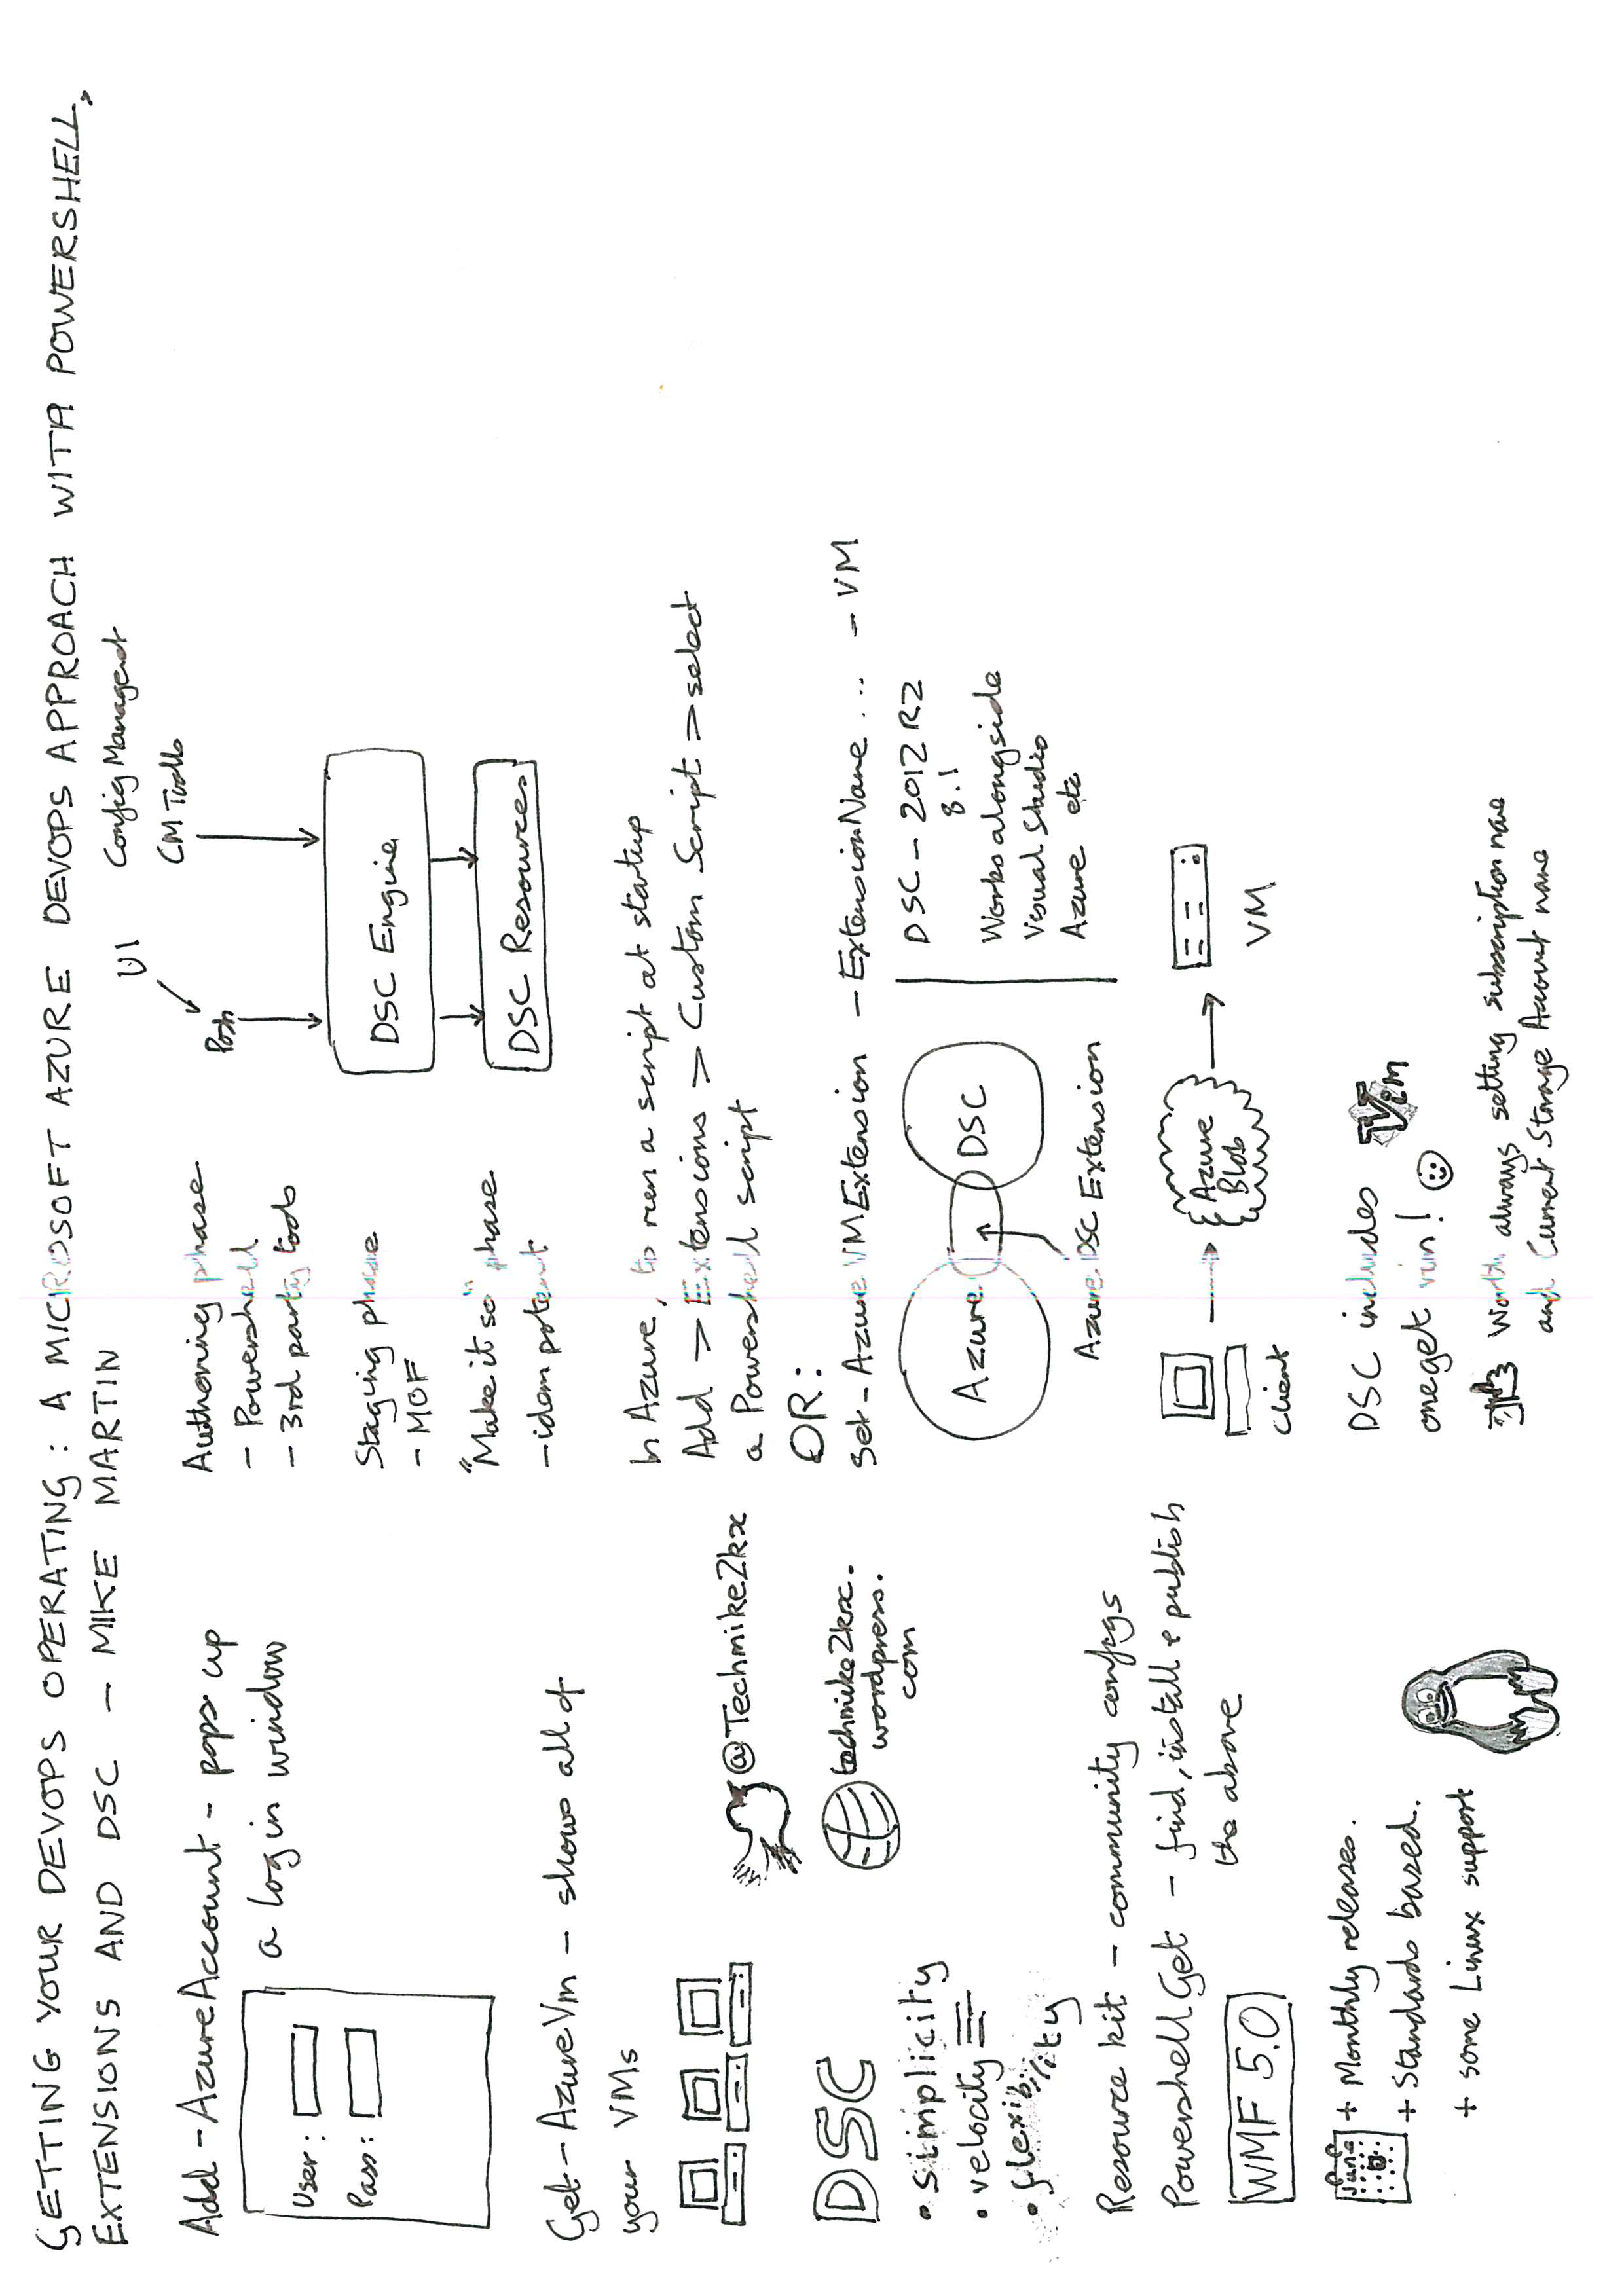 GETTING YOUR DEVOPS OPERATING : A MICROSOFT AZURE DEVOPS APPROACH WITH POWERSHELL,
EXTENSIONS AND DSC – MIKE MARTIN
Add-AzureAccount - pops up
a log in window
User :
Pass :
Get-AzureVm - shows all of
your VMs
@Techmike2kx
techmike2kx.
wordpress.
com
DSC
• simplicity
• velocity
• flexibility
Resource kit - community configs
PowershellGet - find, install & publish
the above
WMF 5.0
June
+ Monthly releases.
+ Standards based.
+ some Linux support
Authoring phase
- Powershell
- 3rd party tools
Staging phase
- MOF
"Make it so" phase
- idempotent
UI
Posh
Config Management
CM Tools
DSC Engine
DSC Resources
In Azure, to run a script at startup
Add > Extensions > Custom Script > select
a Powershell script
OR:
Set-AzureVMExtension -ExtensionName ... -VM
Azure
DSC
Azure DSC Extension
DSC - 2012 R2
8.1
Works alongside
Visual Studio
Azure etc
Client
Azure
Blob
VM
DSC includes
oneget vim!
Vim
Worth always setting subscription name
and Current Storage Account name